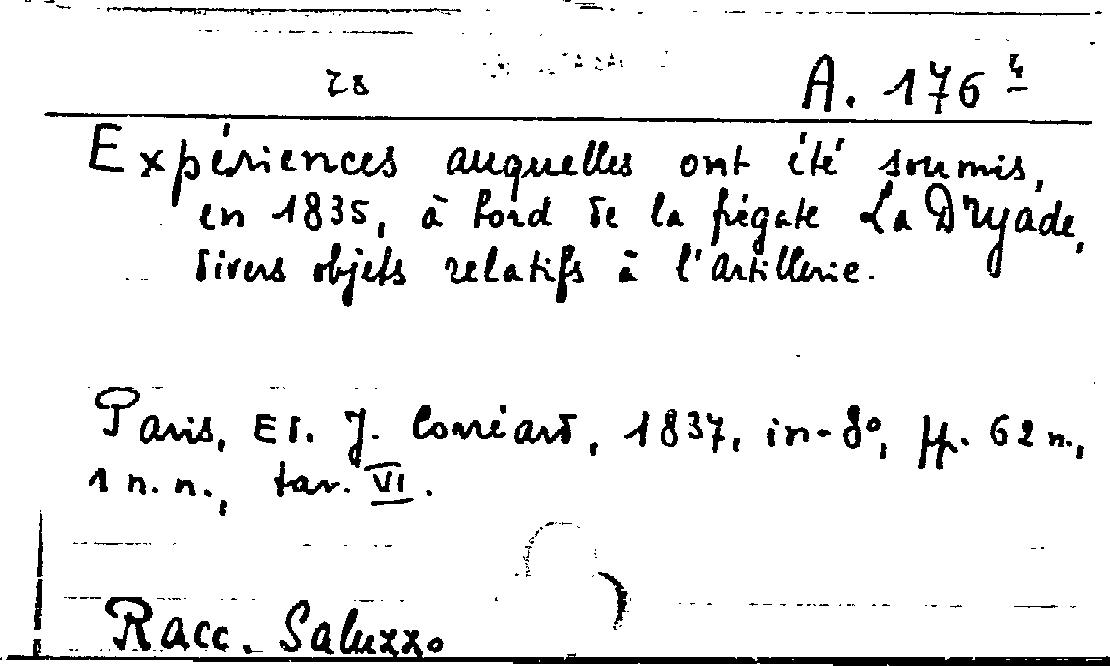 28 A. 176 4
Expériences auquelles ont été soumis,
en 1835, à bord de la frégate La Dryade,
divers objets relatifs à l'artillerie.
Paris, Ed. J. Corréard, 1837, in-8°, pp. 62 n.,
1 n. n., tav. VI.
Racc. Saluzzo